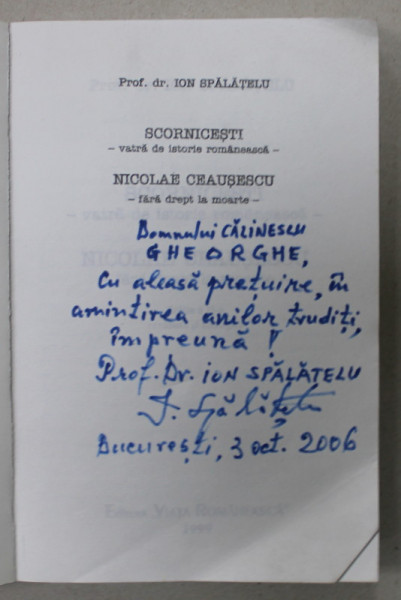 Prof. dr. ION SPĂLĂȚELU
SCORNICEȘTI
– vatră de istorie românească –
NICOLAE CEAUȘESCU
– fără drept la moarte –
Domnului CĂLINESCU
GHEORGHE,
Cu aleasă prețuire, în
amintirea anilor trudiți,
împreună !
Prof. Dr. ION SPĂLĂȚELU
I. Spălățelu
București, 3 oct. 2006